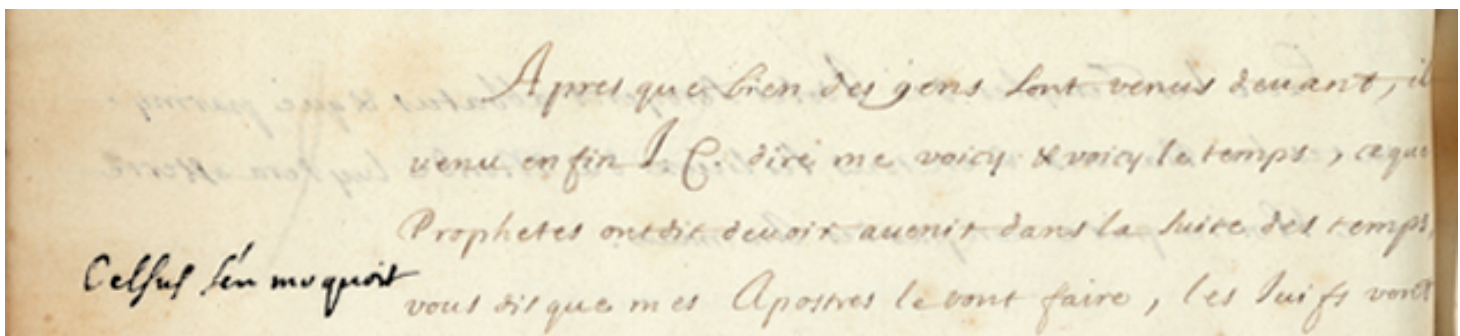 Apres que bien des gens sont venus devant, il
venu enfin J C. dire me voicy & voicy le temps, ce que
Prophetes ont dit devoir avenir dans la suite des temps,
Celsus s'en moquoit
vous dis que mes Apostres le vont faire, les Juifs vont